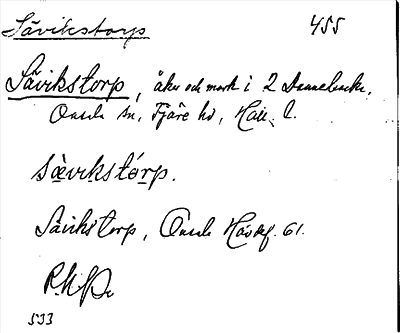 Sävikstorp 455
Sävikstorp, åker och mark i 2 Dannebacka,
Onsala sn, Fjäre hd, Hall. l.
sä̀vikstórp.
Sävikstorp, Onsala Häradsf. 61.
533